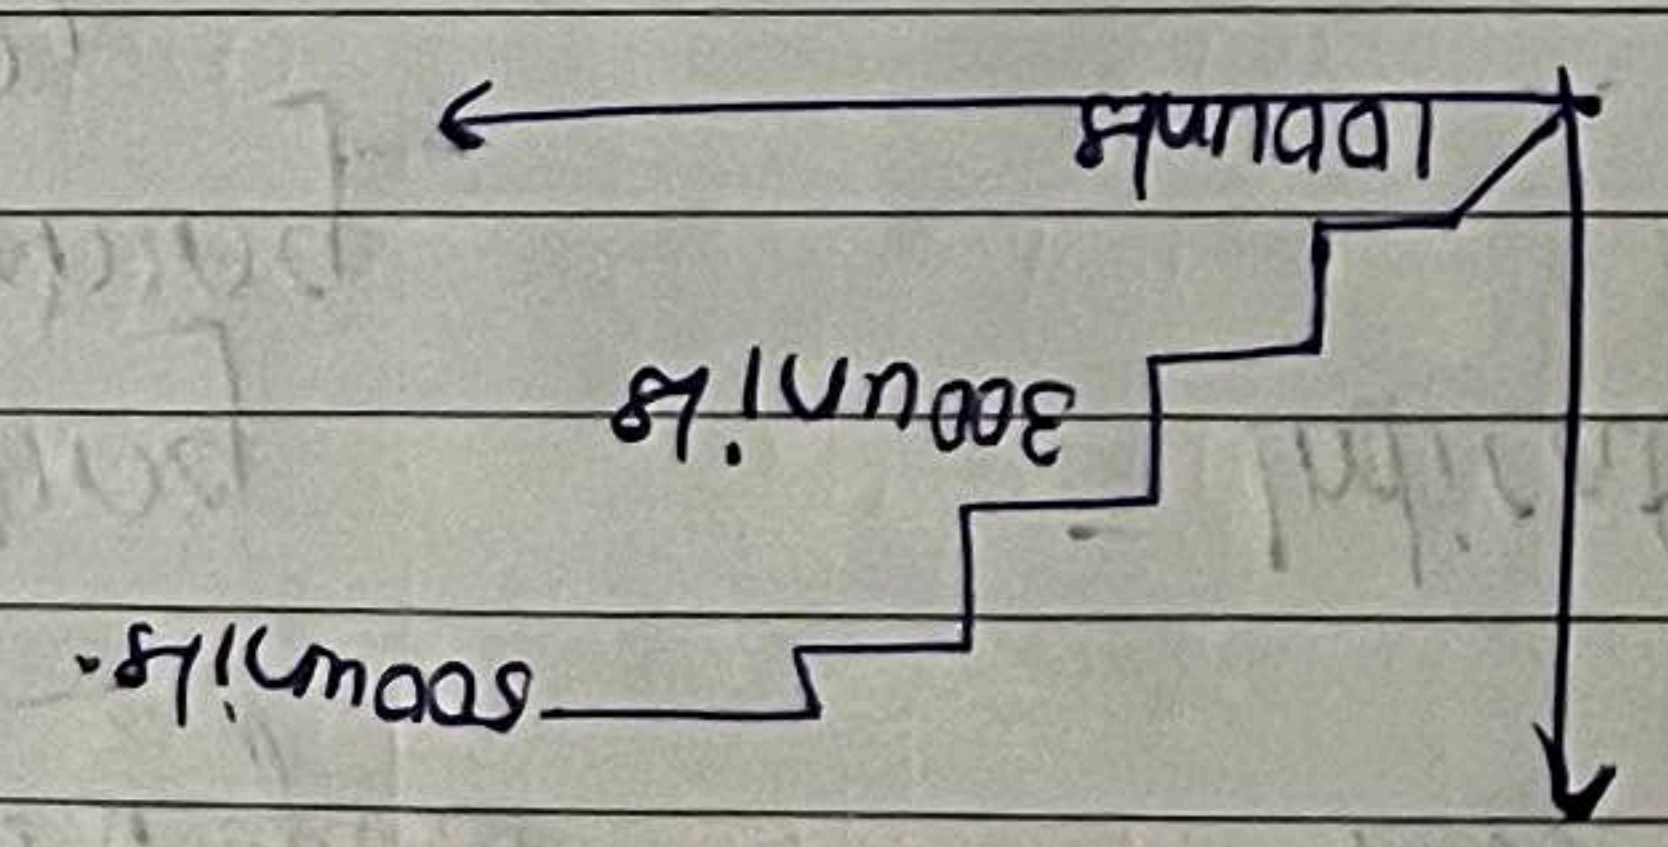 500units.
300units
100units